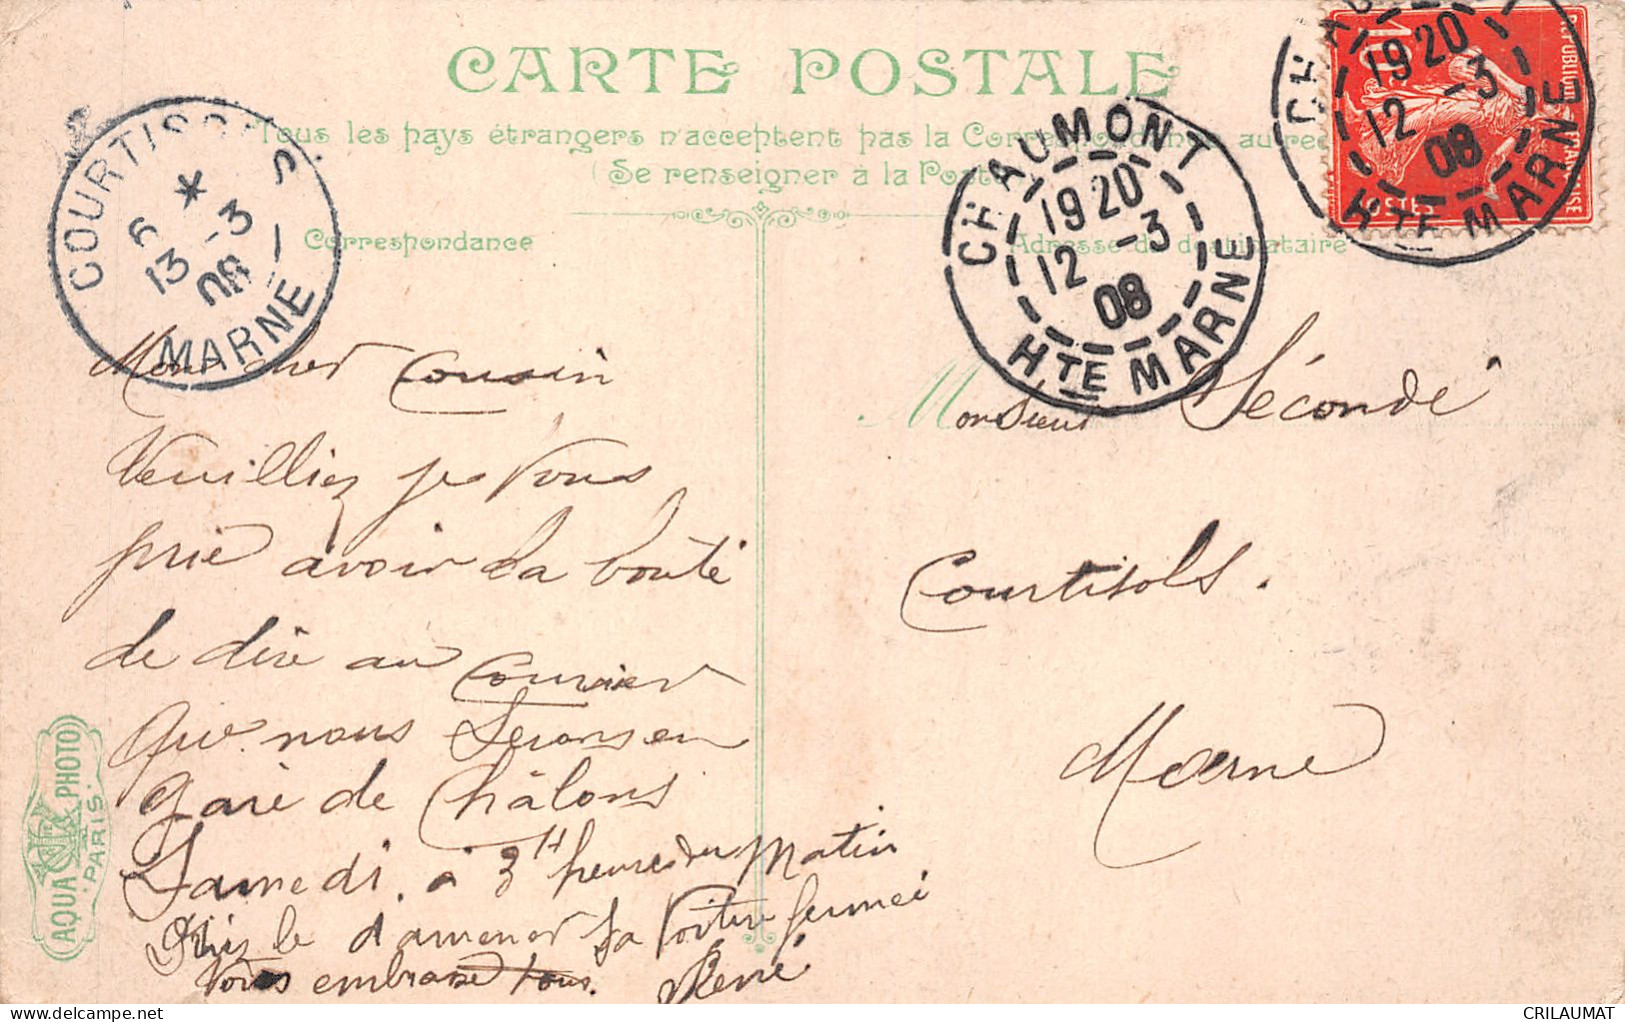 CARTE POSTALE
Tous les pays étrangers n'acceptent pas la Correspondance au rec
(Se renseigner à la Poste
Correspondance
Adresse du destinataire
COURTISOLS
*
6
13 -3
08
MARNE
CHAUMONT
19 20
12 -3
08
HTE MARNE
CHAU
19 20
12 -3
08
HTE MARNE
Mon cher Cousin
Veuilliez je vous
prie avoir la bonté
de dire au Courier
que nous Serons en
gare de Châlons
Samedi à 3H heures du Matin
le d'amener sa voiture fermeé
Vous embrasse tous. René
Monsieur Sécondé
Courtisols.
Marne
AQUA PHOTO
PARIS
CRILAUMAT